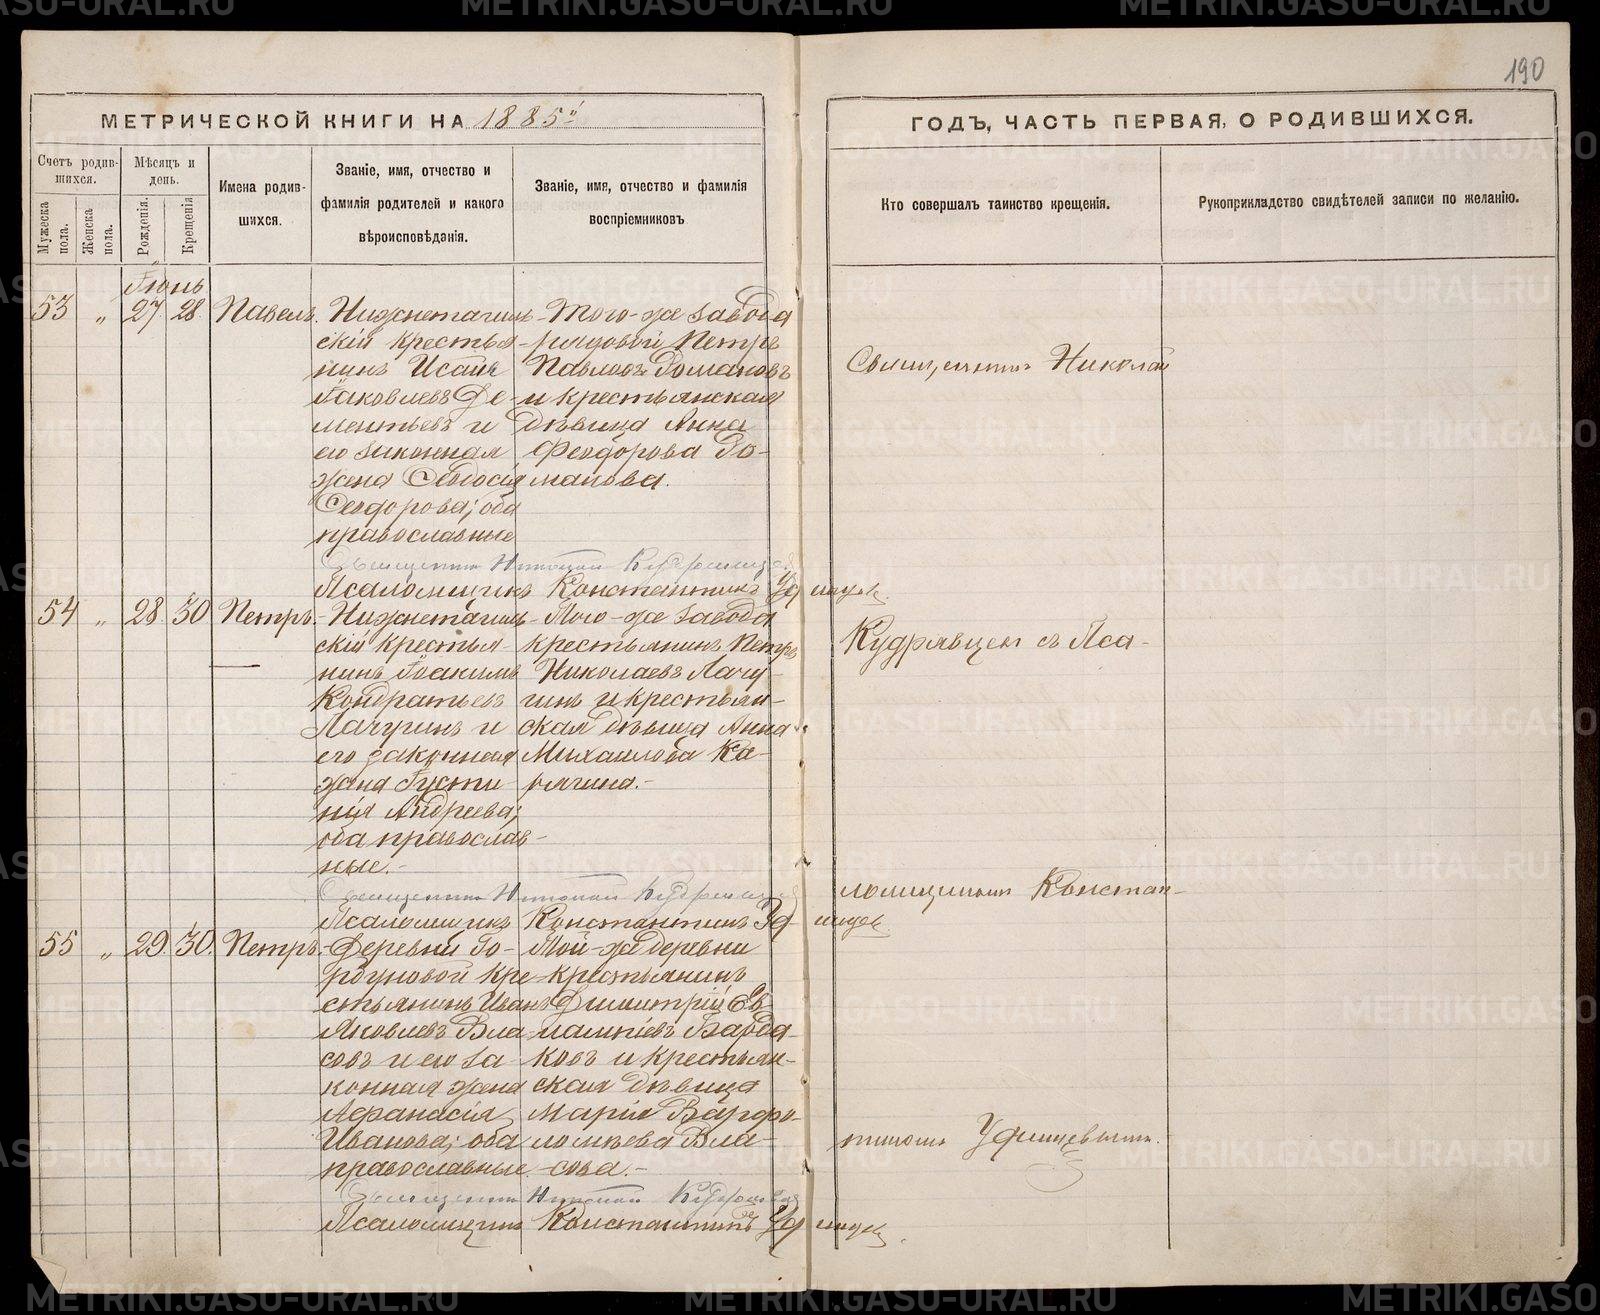 190
МЕТРИЧЕСКОЙ КНИГИ НА 1885й
ГОДЪ, ЧАСТЬ ПЕРВАЯ, О РОДИВШИХСЯ.
Счетъ родив-
шихся.
Мужеска пола.
Женска пола.
Мѣсяцъ и
день.
Рожденія.
Крещенія
Имена родив-
шихся.
Званіе, имя, отчество и
фамилія родителей и какого
вѣроисповѣданія.
Званіе, имя, отчество и фамилія
воспріемниковъ
Кто совершалъ таинство крещенія.
Рукоприкладство свидѣтелей записи по желанію.
Іюнь
53 " 27 28 Павелъ.
Нижнетагиль-
скій крестья-
нинъ Исаія
Іаковлевъ Де-
ментьевъ и
его законная
жена Ѳеодосія
Ѳеодорова; оба
православные
Того-же завода
рядовой Петръ
Павловъ Романовъ
и крестьянская
дѣвица Анна
Феодорова Ро-
манова.
Священникъ Николай Кудрявцев
Псаломщикъ Константинъ Уфимцев.
54 " 28 30 Петръ.
Нижнетагиль-
скій крестья-
нинъ Іоакимъ
Кондратьевъ
Лачугинъ и
его законная
жена Густи-
нія Андреева;
оба православ-
ные.-
Того-же завода
крестьянинъ Петръ
Николаевъ Лачу-
гинъ и крестьян-
ская дѣвица Анна
Михаилова Ка-
рягина.-
Священникъ Николай Кудрявцев
Псаломщикъ Константинъ Уфимцев.
55 " 29 30. Петръ.
Деревни Го-
рбуновой кре-
стьянинъ Иванъ
Яковлевъ Вла-
совъ и его за-
конная жена
Афанасія
Иванова; оба
православные.
Той-же деревни
крестьянинъ
Димитрій Ев-
лампіевъ Барда-
ковъ и крестьян-
ская дѣвица
Марія Варфо-
ломѣева Вла-
сова.-
Священникъ Николай Кудрявцев
Псаломщикъ Константинъ Уфимцев.
Священникъ Николай
Кудрявцевъ съ Пса-
ломщикомъ Констан-
тиномъ Уфимцевымъ.
METRIKI.GASO-URAL.RU